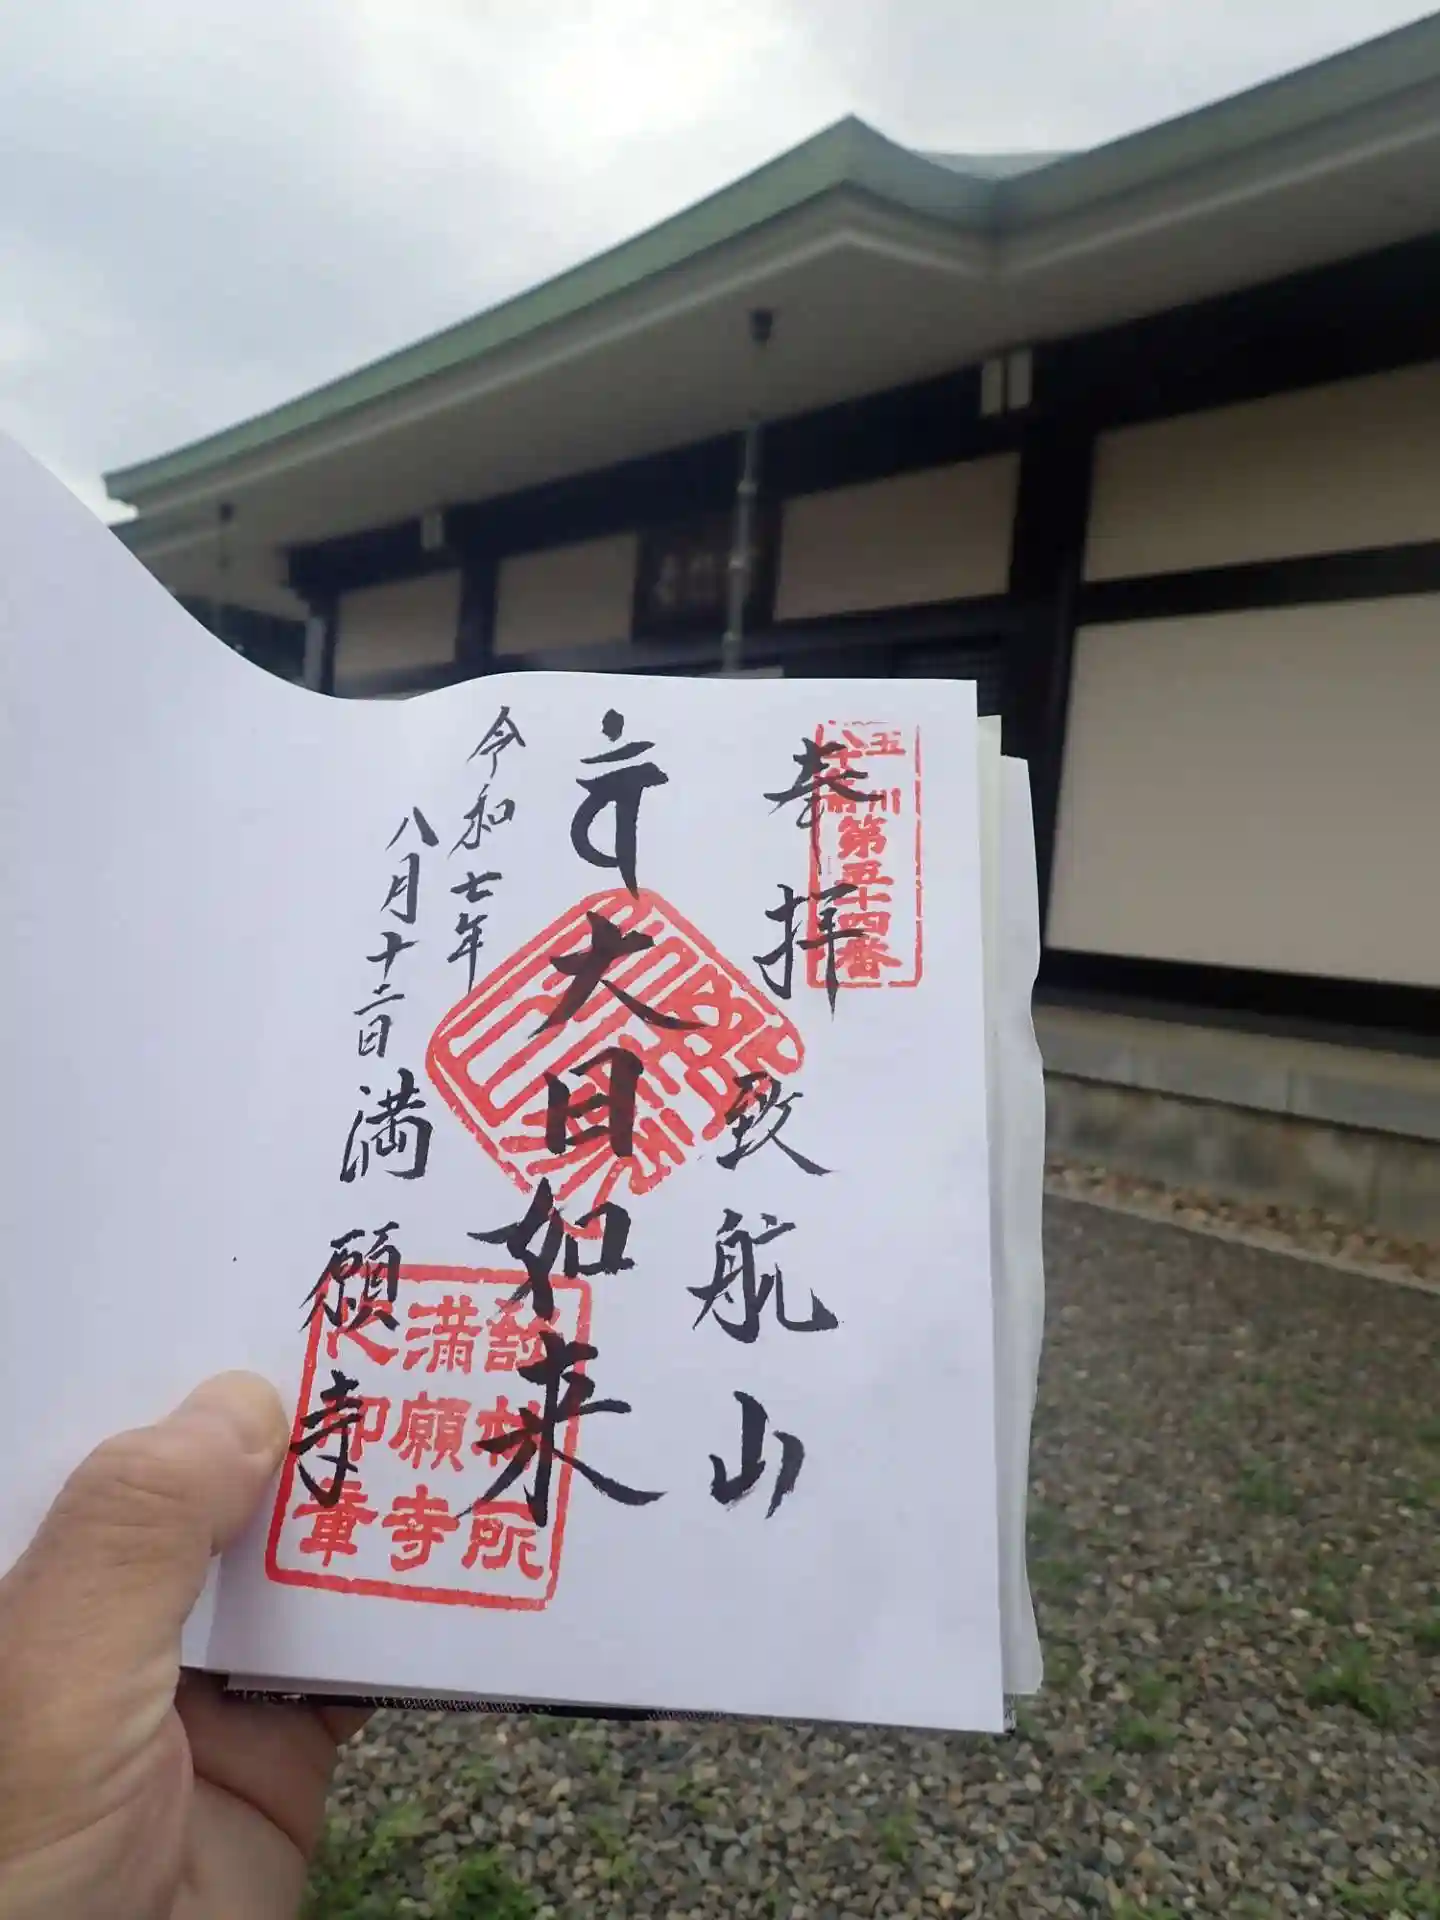 奉拝
致航山
大日如来
令和七年
八月十二日
満願寺
玉川
八十八ヶ所
第五十四番
満願寺